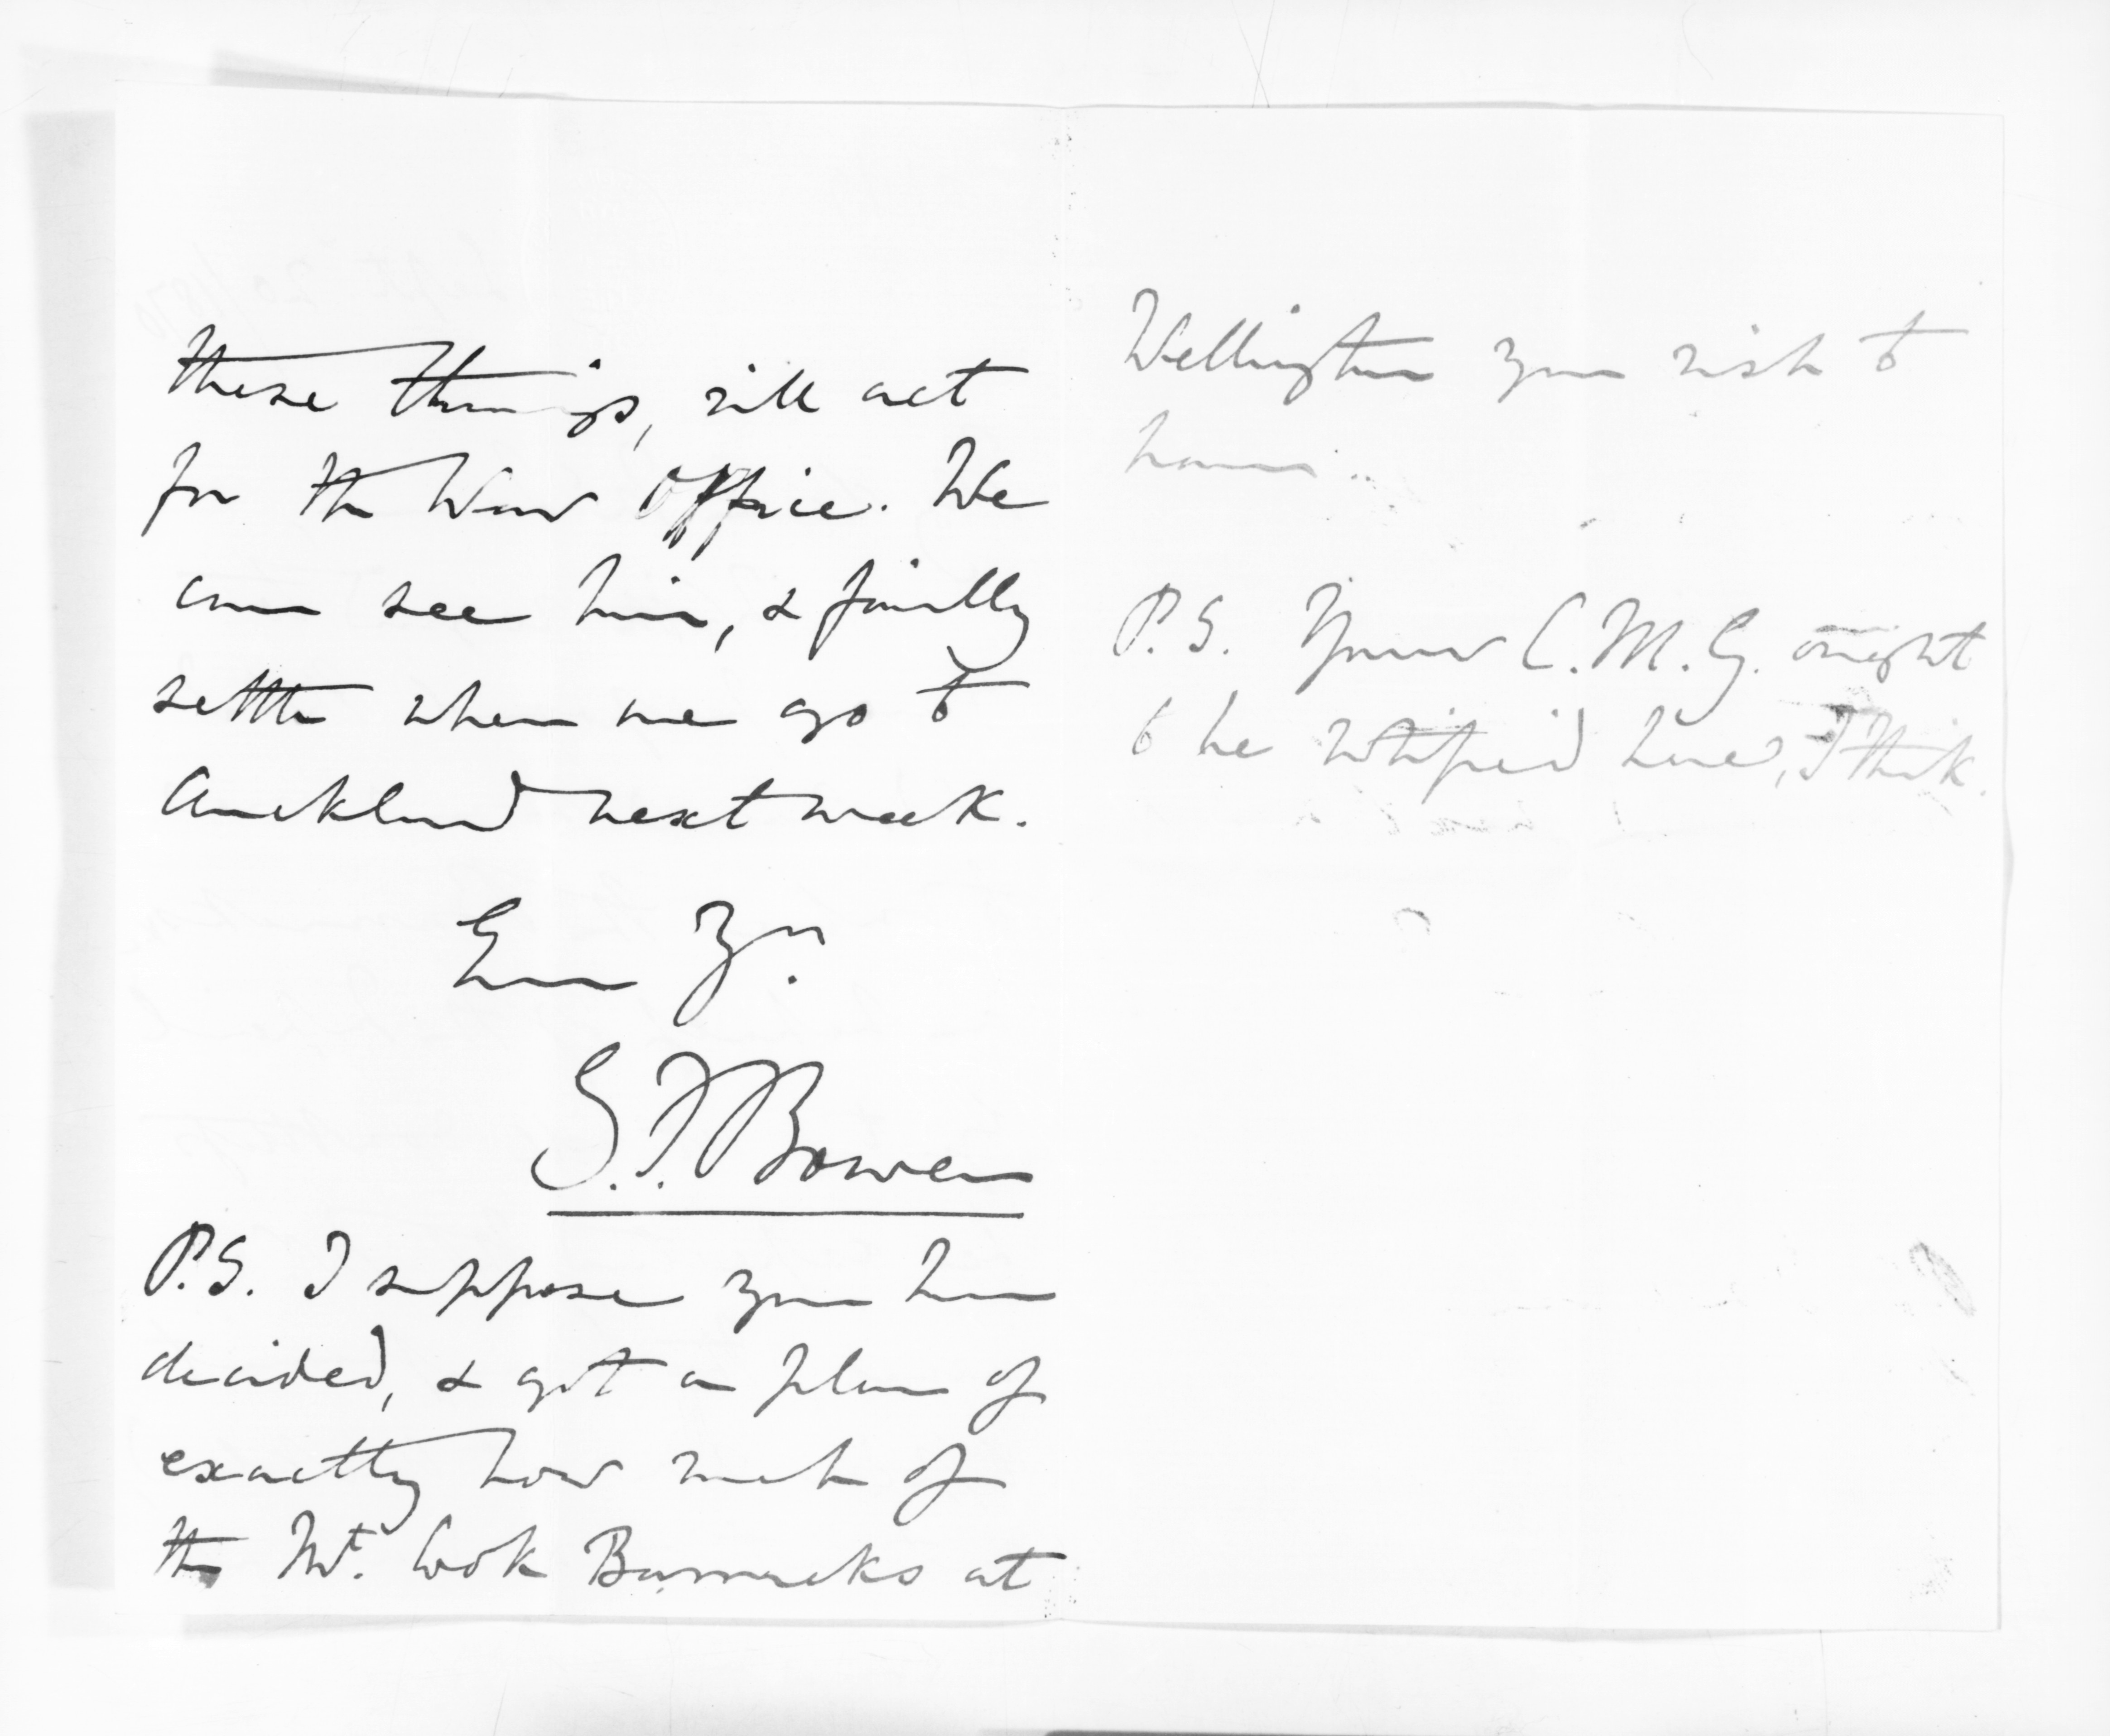 these things, will act
for the War Office. We
can see him, & finally
settle when we go to
Auckland next week.
Ever Yrs.
G.F.Bowen
P.S. I suppose you have
decided, & got a plan of
exactly how much of
the Mt. Cook Barracks at
Wellington you wish to
have.
P.S. Your C.M.G. ought
to be notified here, I think.